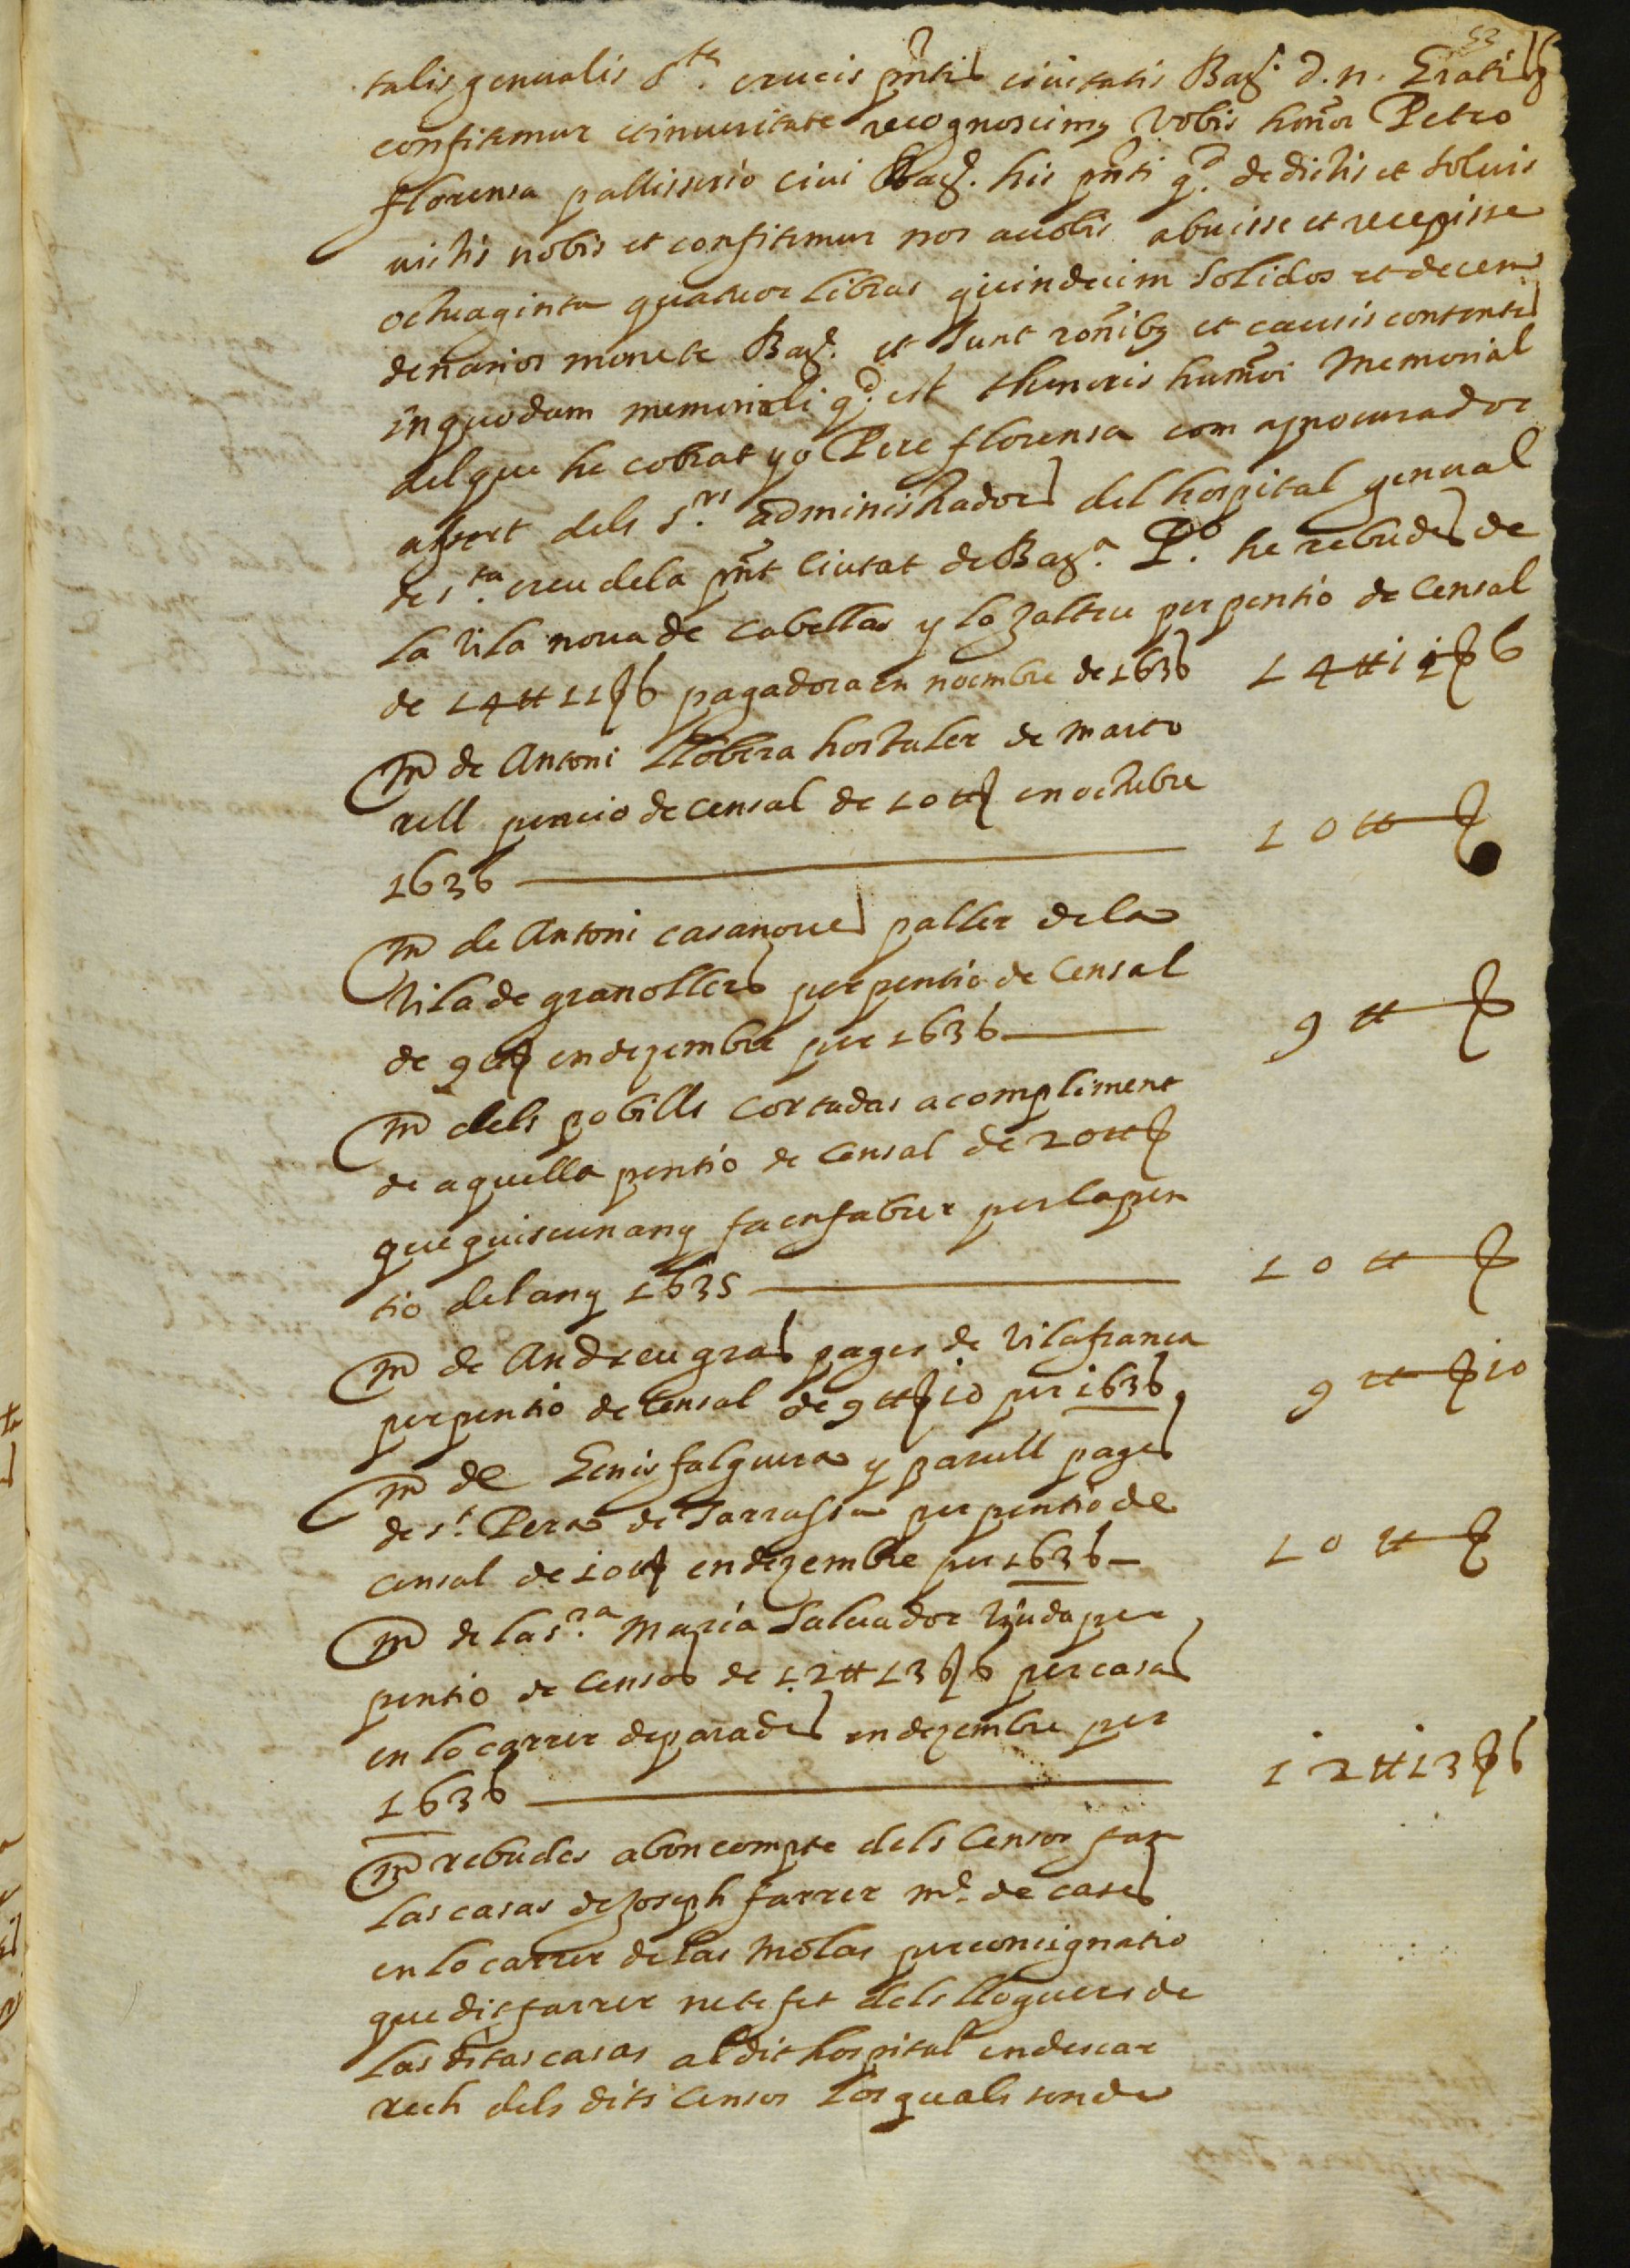 53
talis generalis S.te crucis pñtis civitatis Barñ. d. n. Gratis
confitemur et in veritate recognoscimus vobis honor Petro
florensa pallisserio civi Barñ. his pñti q.d dedistis et solvis
tistis nobis et confitemur nos a vobis abuisse et recepisse
octuaginta quatuor libras quindecim solidos et decem
denarios monete Barñ. et sunt rõnibus et causis contentis
in quodam memoriali q.d est thenoris humõi Memorial
del que he cobrat yo Pere florensa com a procurador
assert dels s.rs administradors del hospital general
de s.ta creu de la pñt Ciutat de Barñ.a P.o he rebudes de
la vila nova de Cabellas y la Zaltru per pentio de Censal
de 14 ₶ 11 ß 6 pagadora en noembre de 1636 14 ₶ 11 ß 6
Mº de Antoni Llobera hostaler de marto
rell pencio de censal de 10 ₶ ß en octubre
1636 10 ₶ ß
Mº de Antoni casanoves paller de la
vila de granollers per pentio de Censal
de 9 ₶ ß en dezembre per 1636 9 ₶ ß
Mº dels pobills cortadas a compliment
de aquella pentio de Censal de 20 ₶ ß
que quiscun any fa en fabrer per la pen
tio del any 1635 10 ₶ ß
Mº de Andreu gras pages de vilafranca
per pentio de Censal de 9 ₶ ß 10 per 1636 9 ₶ ß 10
Mº de Genis falguera y parull pages
de s.t Pera de Tarrassa per pentio de
censal de 10 ₶ ß en dezembre per 1636 10 ₶ ß
Mº de la s.ra Maria Salvador viuda per
pentio de Censos de 12 ₶ 13 ß 6 per casas
en lo carrer de parades en dezembre per
1636 12 ₶ 13 ß 6
Mº rebudes a bon compte dels Censos fan
las casas de Joseph farrer m.e de cases
en lo carrer de las Molas per consignatio
que dit farrer ne te fet dels lloguers de
las ditas casas al dit hospital en descar
rech dels dits Censos los quals son de